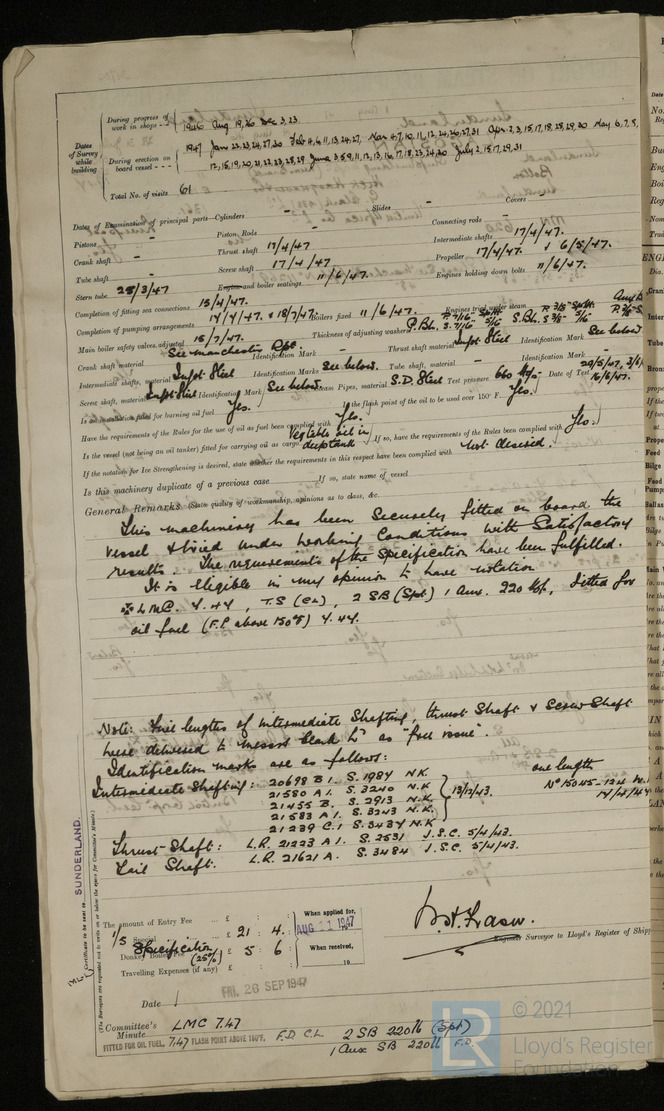 Dates of Survey while building
During progress of work in shops - -
1946 Aug 19, 26 Dec 3, 23.
During erection on board vessel - - -
1947 Jan 22, 23, 24, 27, 30 Feb 4, 6, 11, 13, 24, 27, Mar 4, 7, 10, 11, 12, 24, 26, 27, 31 Apr 2, 3, 15, 17, 18, 28, 29, 30 May 6, 7, 8,
12, 15, 19, 20, 21, 22, 23, 28, 29 June 3, 5, 9, 11, 12, 13, 16, 17, 18, 23, 24, 30 July 2, 15, 17, 29, 31
Total No. of visits 61
Dates of Examination of principal parts—Cylinders - Slides - Covers -
Pistons - Piston Rods - Connecting rods -
Crank shaft - Thrust shaft 17/4/47 Intermediate shafts 17/4/47.
Tube shaft - Screw shaft 17/4/47 Propeller 17/4/47. & 6/5/47.
Stern tube 28/3/47 Engine and boiler seatings 11/6/47. Engines holding down bolts 11/6/47.
Completion of fitting sea connections 15/4/47.
Completion of pumping arrangements 14/7/47. & 18/7/47. Boilers fixed 11/6/47. Engines tried under steam
Main boiler safety valves adjusted 15/7/47. Thickness of adjusting washers
Crank shaft material See Manchester Rpt. Identification Mark - Thrust shaft material Ingot Steel Identification Mark See below
Intermediate shafts, material Ingot Steel Identification Marks See below. Tube shaft, material - Identification Mark -
Screw shaft, material Ingot Steel Identification Mark See below Steam Pipes, material S.D. Steel Test pressure 660 Date of Test
Is an installation fitted for burning oil fuel Yes. Is the flash point of the oil to be used over 150° F. Yes.
Have the requirements of the Rules for the use of oil as fuel been complied with Yes.
Is the vessel (not being an oil tanker) fitted for carrying oil as cargo Vegtable oil in deeptank If so, have the requirements of the Rules been complied with Yes.
If the notation for Ice Strengthening is desired, state whether the requirements in this respect have been complied with Not desired.
Is this machinery duplicate of a previous case If so, state name of vessel
General Remarks (State quality of workmanship, opinions as to class, &c.
This machinery has been securely fitted on board the
vessel & tried under working conditions with satisfactory
results. The requirements of the specification have been fulfilled.
It is eligible in my opinion to have notation
✠ LMC. 7.47, T.S (CL), 2 SB (Spt) 1 Aux. 220 lb, fitted for
oil fuel (F.P. above 150°F) 7.47.
Note: Five lengths of intermediate shafting, thrust shaft & screw shaft
were delivered to Messrs Clark Ld as "free issue".
Identification marks are as follows:
Intermediate Shafting: 20698 B1. S.1984 N.K.
21580 A1. S.3240 N.K.
21455 B. S.2913 N.K.
21583 A1. S.3243 N.K.
21239 C.1 S.3437 N.K.
13/12/43.
one length
Thrust Shaft: L.R. 21223 A1. S.2531 J.S.C. 5/4/43.
Tail Shaft: L.R. 21621 A. S.3484 J.S.C. 5/4/43.
Certificate to be sent to SUNDERLAND.
(The Surveyors are requested not to write on or below the space for Committee's Minute.)
The amount of Entry Fee .. £ : :
1/5 Specification £ 21 : 4.
Donkey Boiler Fee (25%) £ 5 : 6
Travelling Expenses (if any) £ : :
When applied for,
AUG 11 1947
When received,
19
Engineer Surveyor to Lloyd's Register of Shipp
Date FRI. 26 SEP 1947
Committee's Minute LMC 7.47
FITTED FOR OIL FUEL, 7.47 FLASH POINT ABOVE 150°F. F.D. CL 2 SB 220 lb (Spt)
1 Aux SB 220 lb F.D.
LR
© 2021
Lloyd's Register
Foundation